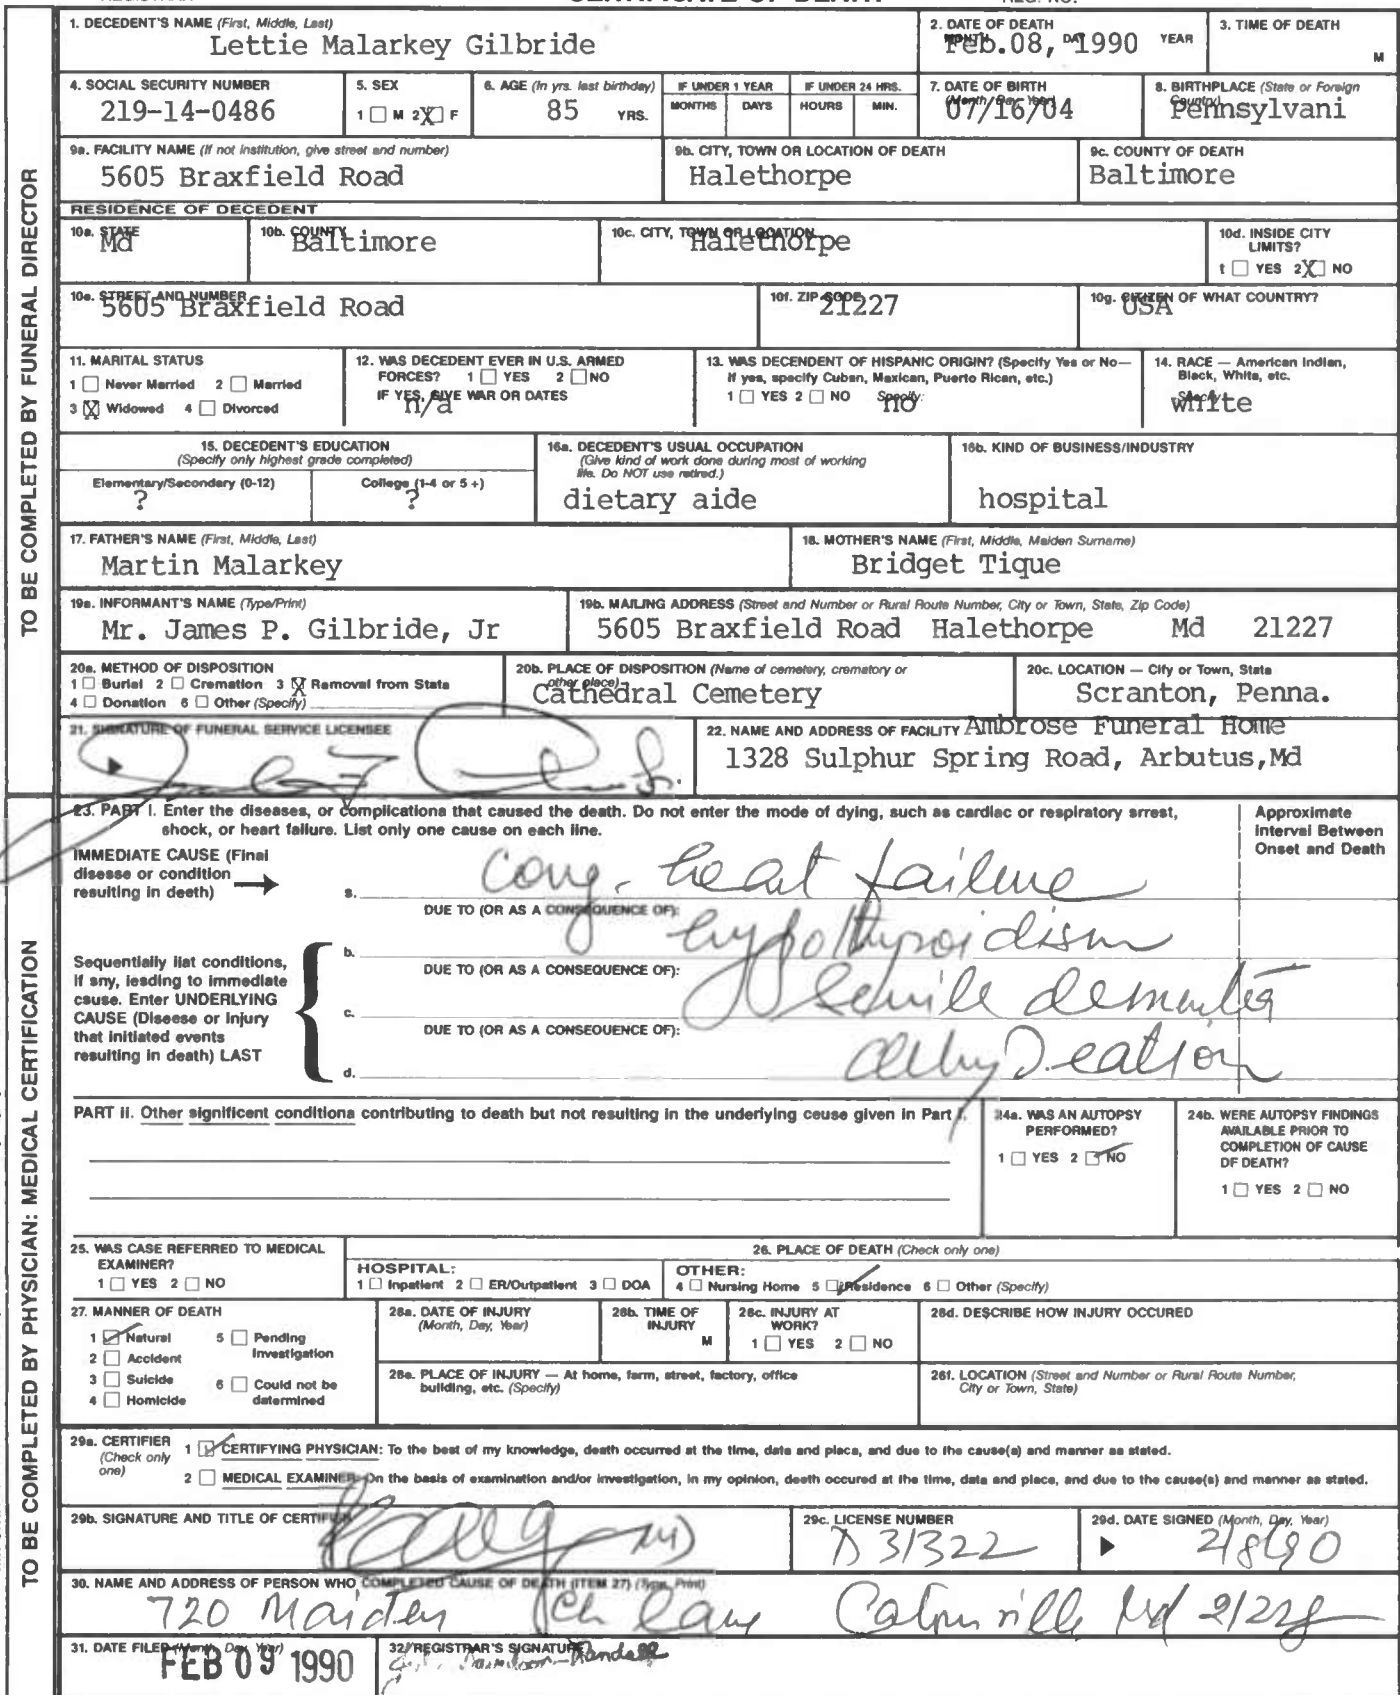 CERTIFICATE OF DEATH
1. DECEDENT'S NAME (First, Middle, Last)
Lettie Malarkey Gilbride
2. DATE OF DEATH
MONTH DAY YEAR
Feb.08, 1990
3. TIME OF DEATH
M
4. SOCIAL SECURITY NUMBER
219-14-0486
5. SEX
1 ☐ M 2 ☒ F
6. AGE (In yrs. last birthday)
85 YRS.
IF UNDER 1 YEAR
MONTHS DAYS
IF UNDER 24 HRS.
HOURS MIN.
7. DATE OF BIRTH
(Month/Day/Year)
07/16/04
8. BIRTHPLACE (State or Foreign
Country)
Pennsylvani
9a. FACILITY NAME (If not institution, give street and number)
5605 Braxfield Road
9b. CITY, TOWN OR LOCATION OF DEATH
Halethorpe
9c. COUNTY OF DEATH
Baltimore
RESIDENCE OF DECEDENT
10a. STATE
Md
10b. COUNTY
Baltimore
10c. CITY, TOWN OR LOCATION
Halethorpe
10d. INSIDE CITY
LIMITS?
1 ☐ YES 2 ☒ NO
10e. STREET AND NUMBER
5605 Braxfield Road
10f. ZIP CODE
21227
10g. CITIZEN OF WHAT COUNTRY?
USA
11. MARITAL STATUS
1 ☐ Never Married 2 ☐ Married
3 ☒ Widowed 4 ☐ Divorced
12. WAS DECEDENT EVER IN U.S. ARMED
FORCES? 1 ☐ YES 2 ☐ NO
IF YES, GIVE WAR OR DATES
n/a
13. WAS DECENDENT OF HISPANIC ORIGIN? (Specify Yes or No—
If yes, specify Cuban, Mexican, Puerto Rican, etc.)
1 ☐ YES 2 ☐ NO Specify:
no
14. RACE — American Indian,
Black, White, etc.
Specify:
white
15. DECEDENT'S EDUCATION
(Specify only highest grade completed)
Elementary/Secondary (0-12)
?
College (1-4 or 5 +)
?
16a. DECEDENT'S USUAL OCCUPATION
(Give kind of work done during most of working
life. Do NOT use retired.)
dietary aide
16b. KIND OF BUSINESS/INDUSTRY
hospital
17. FATHER'S NAME (First, Middle, Last)
Martin Malarkey
18. MOTHER'S NAME (First, Middle, Maiden Surname)
Bridget Tique
19a. INFORMANT'S NAME (Type/Print)
Mr. James P. Gilbride, Jr
19b. MAILING ADDRESS (Street and Number or Rural Route Number, City or Town, State, Zip Code)
5605 Braxfield Road Halethorpe Md 21227
20a. METHOD OF DISPOSITION
1 ☐ Burial 2 ☐ Cremation 3 ☒ Removal from State
4 ☐ Donation 6 ☐ Other (Specify)
20b. PLACE OF DISPOSITION (Name of cemetery, crematory or
other place)
Cathedral Cemetery
20c. LOCATION — City or Town, State
Scranton, Penna.
21. SIGNATURE OF FUNERAL SERVICE LICENSEE
22. NAME AND ADDRESS OF FACILITY Ambrose Funeral Home
1328 Sulphur Spring Road, Arbutus,Md
TO BE COMPLETED BY FUNERAL DIRECTOR
23. PART I. Enter the diseases, or complications that caused the death. Do not enter the mode of dying, such as cardiac or respiratory arrest,
shock, or heart failure. List only one cause on each line.
Approximate
Interval Between
Onset and Death
IMMEDIATE CAUSE (Final
disease or condition
resulting in death) →
a. Cong. heart failure
DUE TO (OR AS A CONSEQUENCE OF):
b. hypothyroidism
DUE TO (OR AS A CONSEQUENCE OF):
c. Senile dementia
DUE TO (OR AS A CONSEQUENCE OF):
d. dehydration
Sequentially list conditions,
if any, leading to immediate
cause. Enter UNDERLYING
CAUSE (Disease or injury
that initiated events
resulting in death) LAST
PART II. Other significant conditions contributing to death but not resulting in the underlying cause given in Part I.
24a. WAS AN AUTOPSY
PERFORMED?
1 ☐ YES 2 ☑ NO
24b. WERE AUTOPSY FINDINGS
AVAILABLE PRIOR TO
COMPLETION OF CAUSE
OF DEATH?
1 ☐ YES 2 ☐ NO
25. WAS CASE REFERRED TO MEDICAL
EXAMINER?
1 ☐ YES 2 ☐ NO
26. PLACE OF DEATH (Check only one)
HOSPITAL:
1 ☐ Inpatient 2 ☐ ER/Outpatient 3 ☐ DOA
OTHER:
4 ☐ Nursing Home 5 ☑ Residence 6 ☐ Other (Specify)
27. MANNER OF DEATH
1 ☑ Natural 5 ☐ Pending
Investigation
2 ☐ Accident
3 ☐ Suicide 6 ☐ Could not be
determined
4 ☐ Homicide
28a. DATE OF INJURY
(Month, Day, Year)
28b. TIME OF
INJURY
M
28c. INJURY AT
WORK?
1 ☐ YES 2 ☐ NO
28d. DESCRIBE HOW INJURY OCCURED
28e. PLACE OF INJURY — At home, farm, street, factory, office
building, etc. (Specify)
28f. LOCATION (Street and Number or Rural Route Number,
City or Town, State)
29a. CERTIFIER
(Check only
one)
1 ☑ CERTIFYING PHYSICIAN: To the best of my knowledge, death occurred at the time, date and place, and due to the cause(s) and manner as stated.
2 ☐ MEDICAL EXAMINER: On the basis of examination and/or investigation, in my opinion, death occured at the time, date and place, and due to the cause(s) and manner as stated.
29b. SIGNATURE AND TITLE OF CERTIFIER
MD
29c. LICENSE NUMBER
D 31322
29d. DATE SIGNED (Month, Day, Year)
2/8/90
30. NAME AND ADDRESS OF PERSON WHO COMPLETED CAUSE OF DEATH (ITEM 27) (Type, Print)
720 Maiden Ch Lane Catonsville Md 21228
31. DATE FILED (Month, Day, Year)
FEB 09 1990
32. REGISTRAR'S SIGNATURE
TO BE COMPLETED BY PHYSICIAN: MEDICAL CERTIFICATION